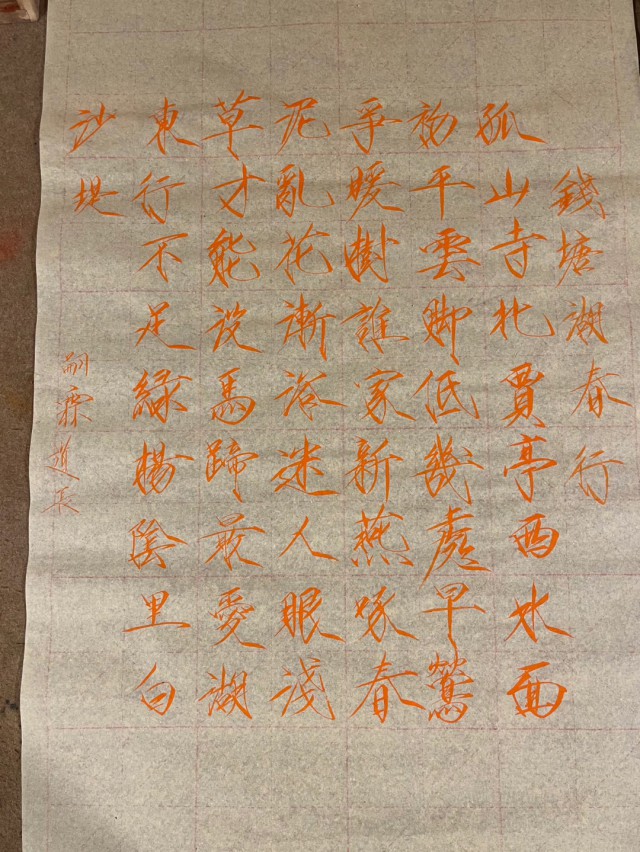 錢塘湖春行
孤山寺北賈亭西水面
初平雲脚低幾處早鶯
爭暖樹誰家新燕啄春
泥亂花漸浴迷人眼淺
草才能没馬蹄最愛湖
東行不足綠楊陰里白
沙堤